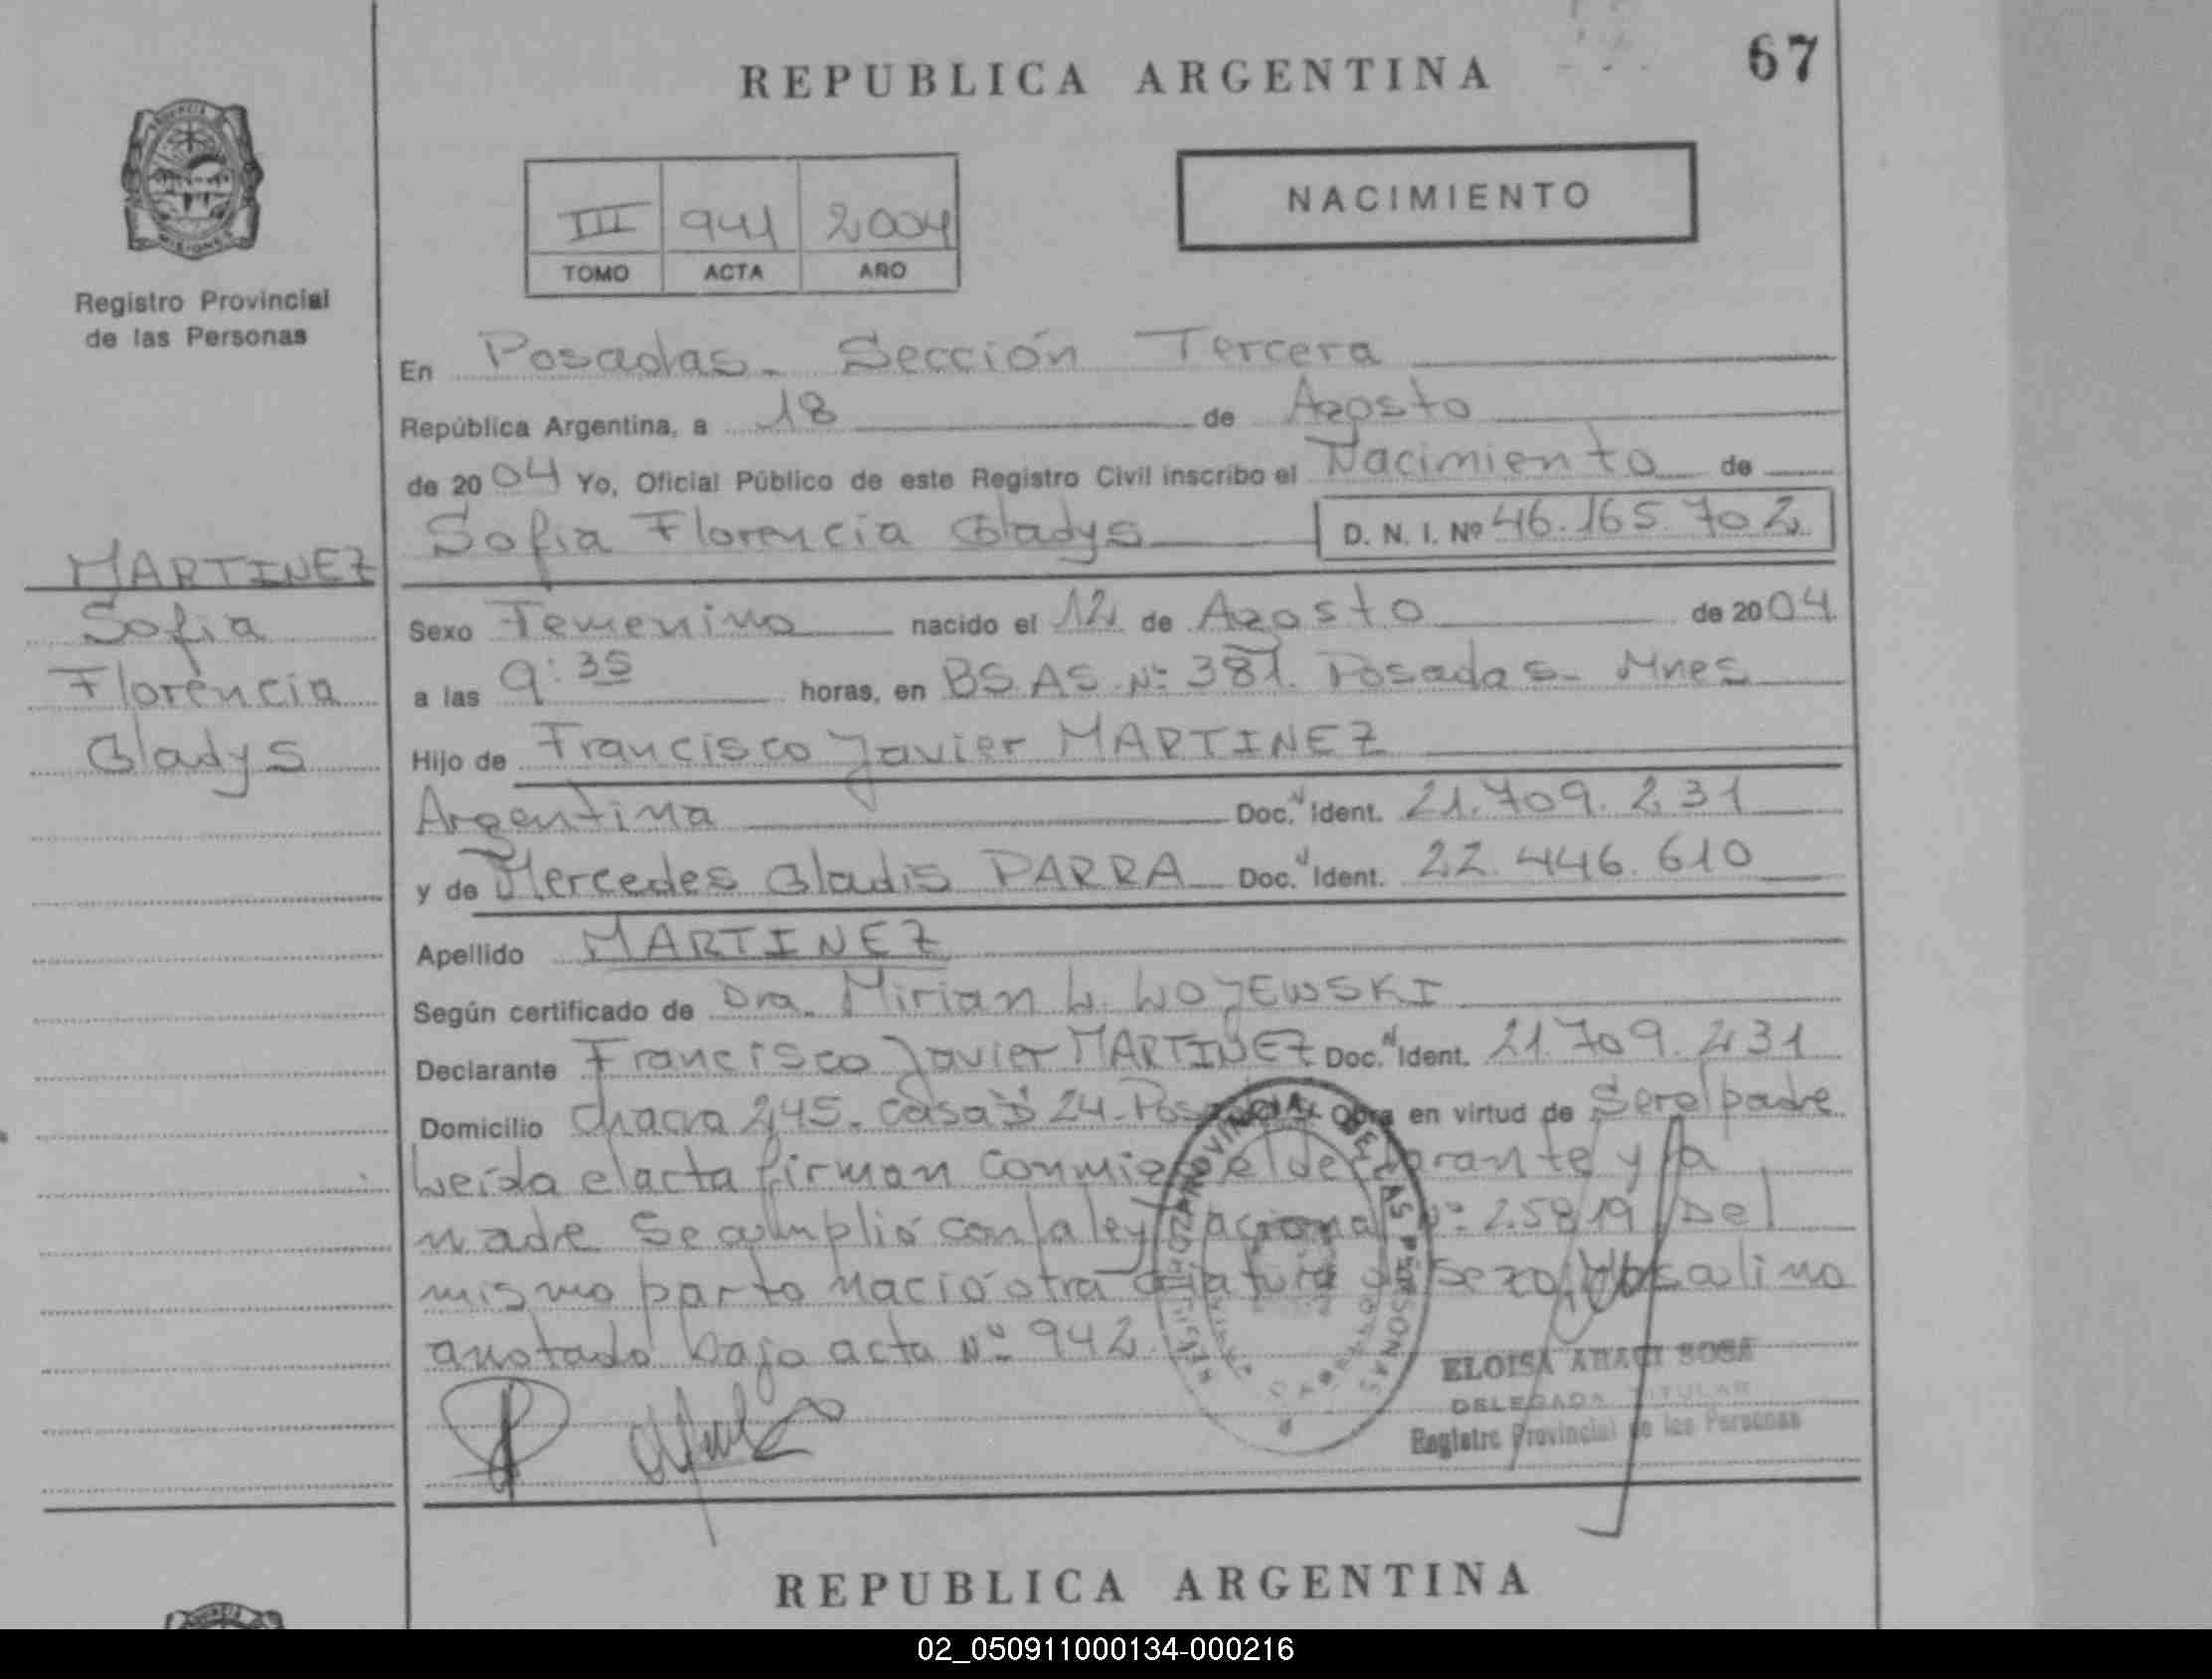 REPUBLICA ARGENTINA
67
PROVINCIA
MISIONES
Registro Provincial
de las Personas
III 941 2004
TOMO ACTA AÑO
NACIMIENTO
En Posadas. Sección Tercera
República Argentina, a 18 de Agosto
de 2004 Yo, Oficial Público de este Registro Civil inscribo el Nacimiento de
Sofia Florencia Gladys D. N. I. Nº 46.165.702
MARTINEZ
Sofia
Florencia
Gladys
Sexo Femenino nacido el 12 de Agosto de 2004
a las 9:35 horas, en BS.AS. Nº 381. Posadas- Mnes
Hijo de Francisco Javier MARTINEZ
Argentina Doc. N Ident. 21.709.231
y de Mercedes Gladis PARRA Doc. N Ident. 22.446.610
Apellido MARTINEZ
Según certificado de Dra. Mirian L. LOJEWSKI
Declarante Francisco Javier MARTINEZ Doc. N Ident. 21.709.231
Domicilio Chacra 245. Casa 24. Obra en virtud de Ser el padre
Leída el acta firman conmigo el declarante y la
madre Se cumplió con la ley nacional Nº 25819. Del
mismo parto nació otra criatura de sexo Masculino
anotado bajo acta Nº 942.
REGISTRO PROVINCIAL DE LAS PERSONAS
ELOISA ARACI SOSA
DELEGADA TITULAR
Registro Provincial de las Personas
REPUBLICA ARGENTINA
02_050911000134-000216